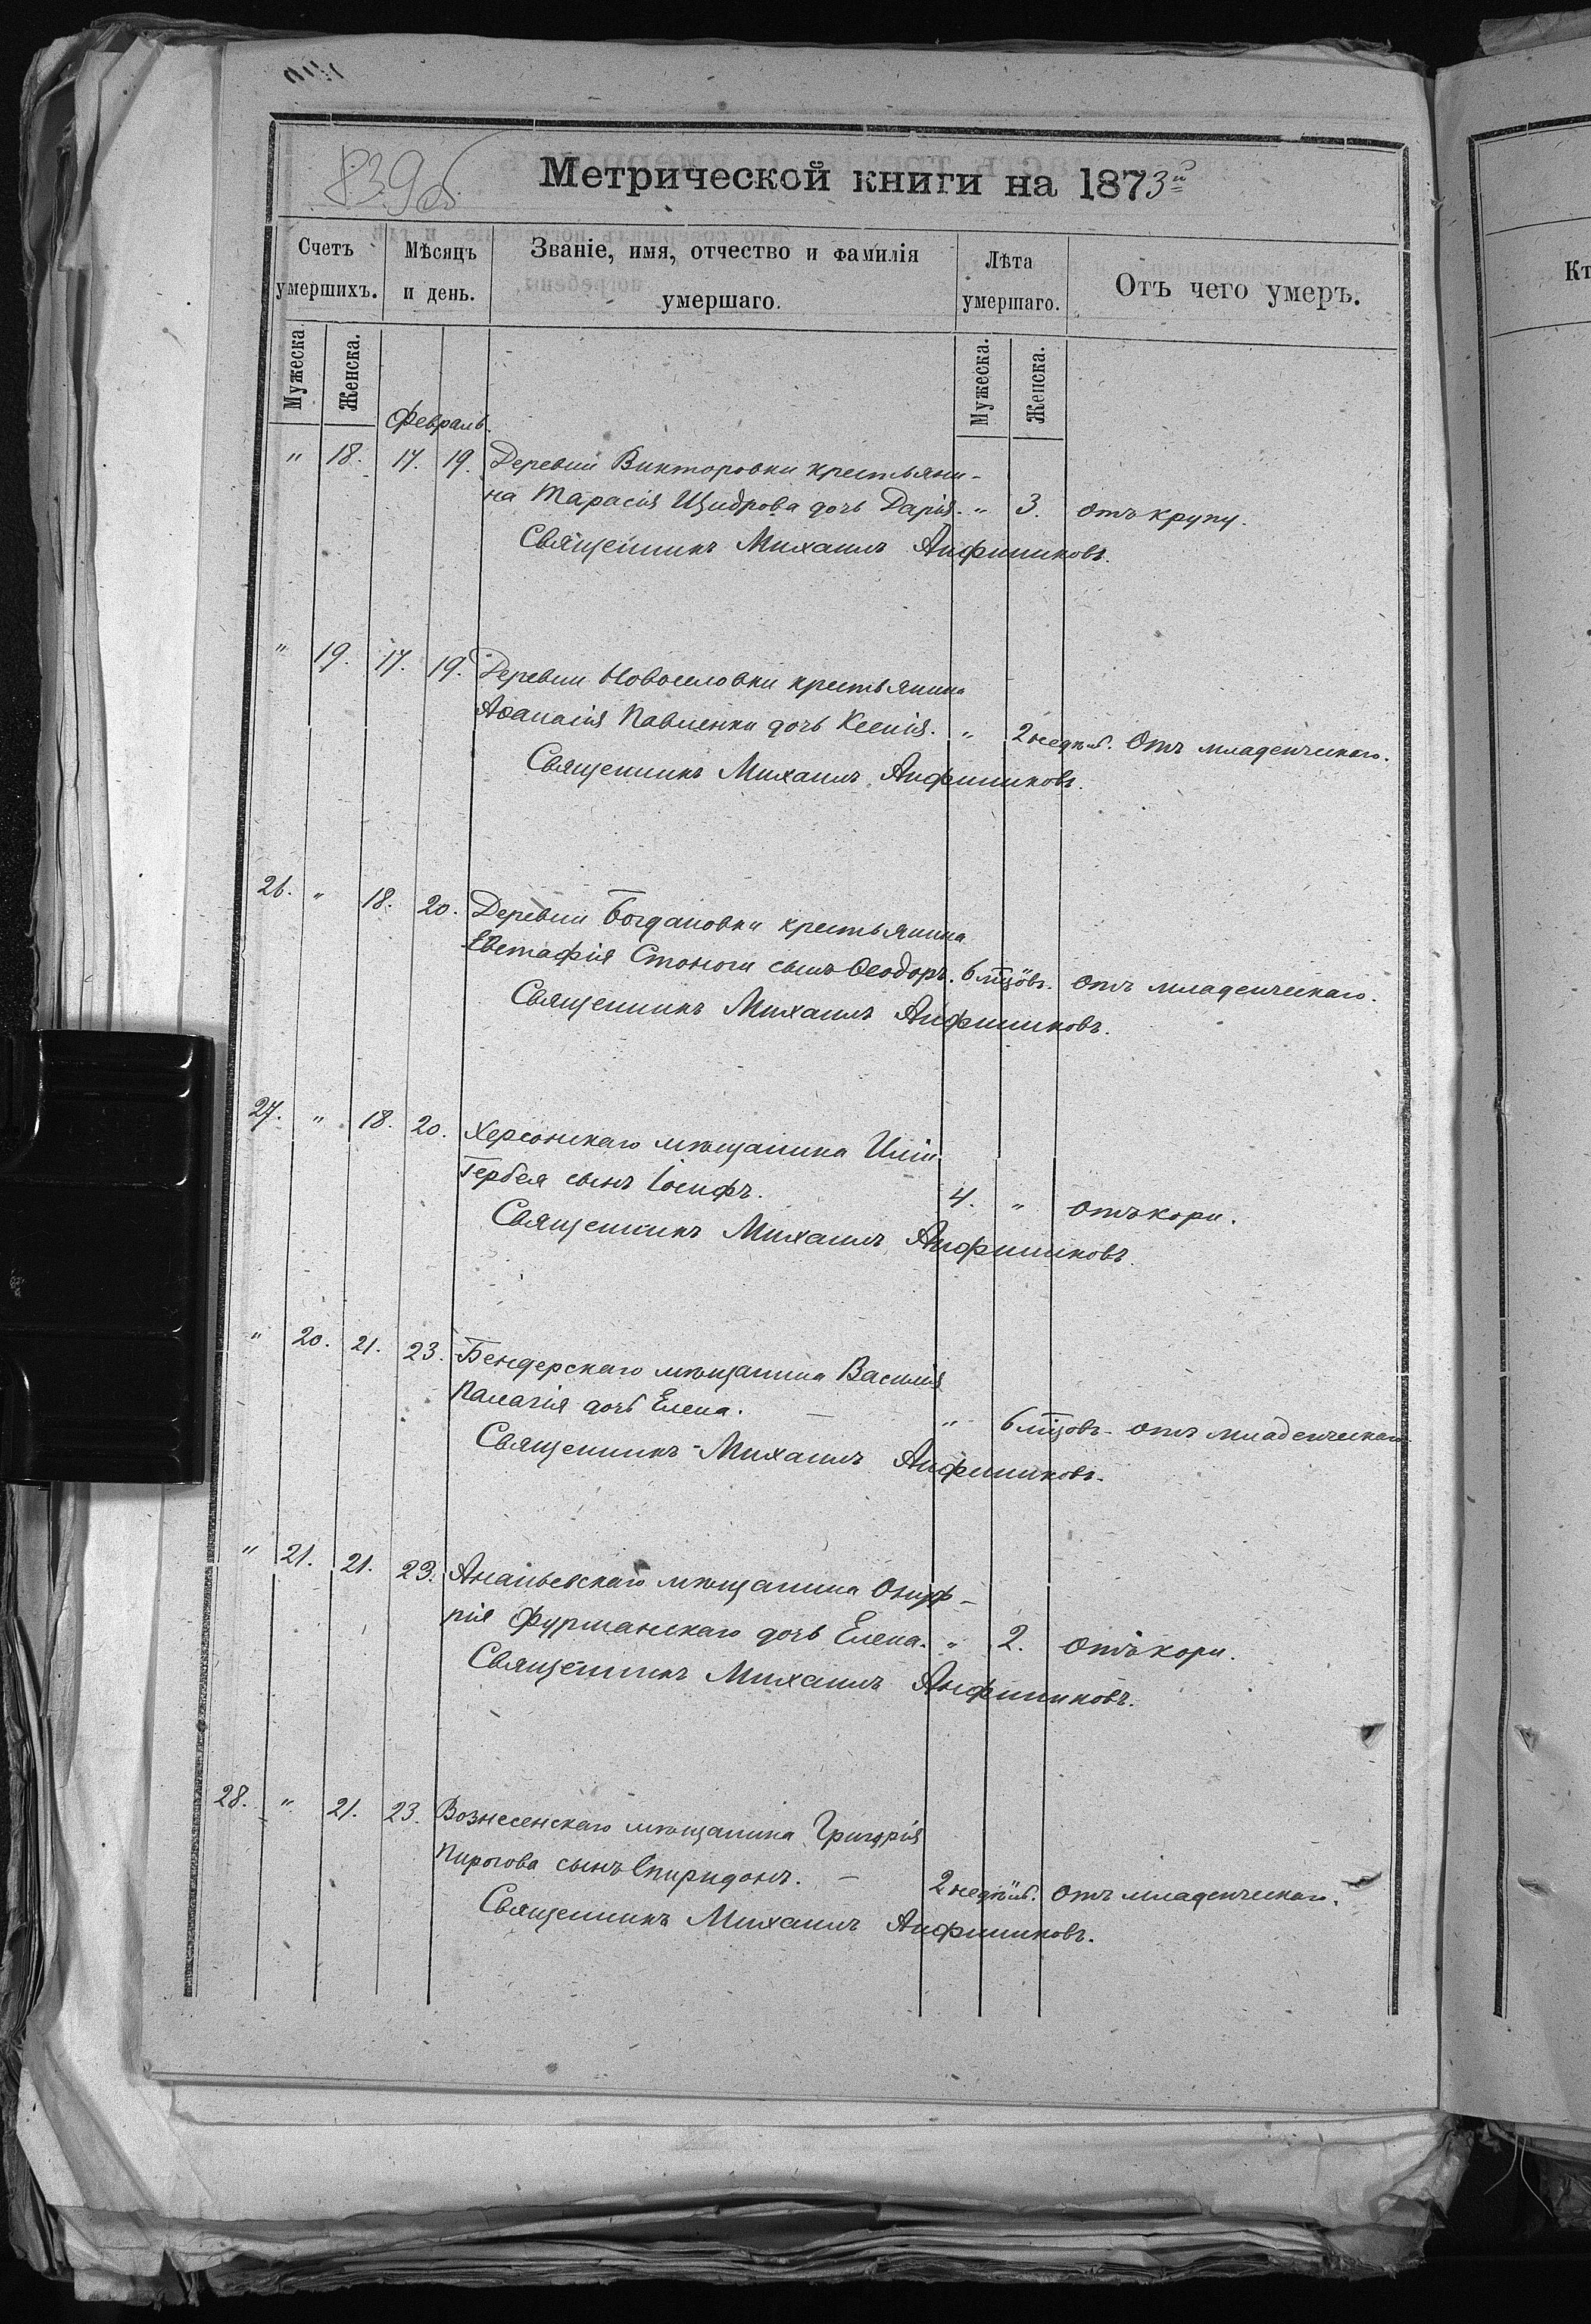 839об
Метрической книги на 1873й
Счетъ умершихъ.
Мѣсяцъ и день.
Званіе, имя, отчество и фамилія умершаго.
Лѣта умершаго.
Отъ чего умеръ.
Мужеска
Женска.
Мужеска.
Женска.
Февраль.
" 18. 17. 19. Деревни Викторовки крестьяни-
на Тарасія Щидрова дочь Дарія. " 3. отъ крупу.
Священникъ Михаилъ Анфиниковъ.
" 19. 17. 19. Деревни Новоселовки крестьянина
Аѳанасія Павленки дочь Ксенія. " 2 недѣль. Отъ младенческаго.
Священникъ Михаилъ Анфиниковъ.
26. " 18. 20. Деревни Богдановки крестьянина
Евстафія Стоноги сынъ Ѳеодоръ. 6 мцовъ. отъ младенческаго.
Священникъ Михаилъ Анфиниковъ.
27. " 18. 20. Херсонскаго мѣщанина Иліи
Гербея сынъ Іосифъ. 4. " отъ кори.
Священникъ Михаилъ Анфиниковъ.
" 20. 21. 23. Бендерскаго мѣщанина Василія
Палагія дочь Елена. " 6 мцовъ отъ младенческаго
Священникъ Михаилъ Анфиниковъ.
" 21. 21. 23. Ананьевскаго мѣщанина Онуф-
рія Фурманскаго дочь Елена. " 2. отъ кори.
Священникъ Михаилъ Анфиниковъ.
28. " 21. 23. Вознесенскаго мѣщанина Григорія
Пирогова сынъ Спиридонъ. 2 недѣль. отъ младенческаго.
Священникъ Михаилъ Анфиниковъ.
Кт